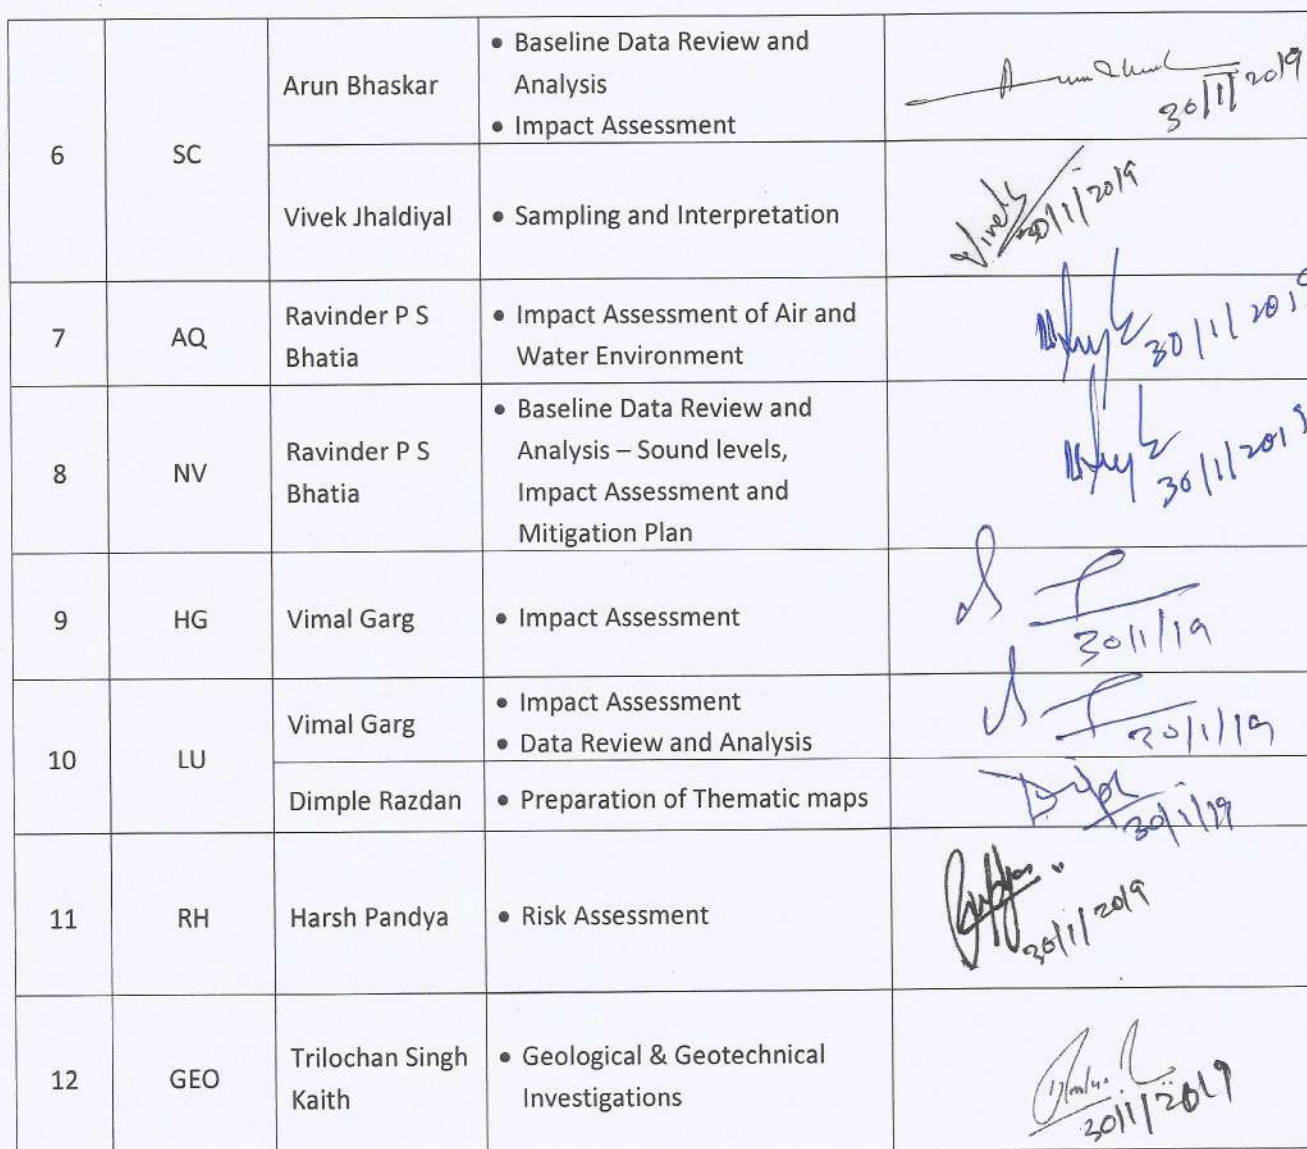 6
SC
Arun Bhaskar
• Baseline Data Review and
Analysis
• Impact Assessment
30/1/2019
Vivek Jhaldiyal
• Sampling and Interpretation
Vivek
30/1/2019
7
AQ
Ravinder P S
Bhatia
• Impact Assessment of Air and
Water Environment
30/1/2019
8
NV
Ravinder P S
Bhatia
• Baseline Data Review and
Analysis – Sound levels,
Impact Assessment and
Mitigation Plan
30/1/2019
9
HG
Vimal Garg
• Impact Assessment
30/1/19
10
LU
Vimal Garg
• Impact Assessment
• Data Review and Analysis
30/1/19
Dimple Razdan
• Preparation of Thematic maps
30/1/19
11
RH
Harsh Pandya
• Risk Assessment
30/1/2019
12
GEO
Trilochan Singh
Kaith
• Geological & Geotechnical
Investigations
30/1/2019